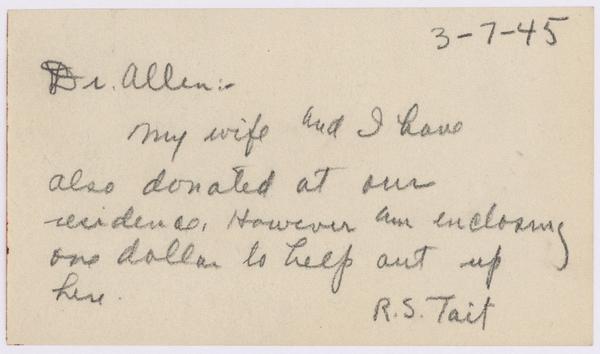 3-7-45
Dr. Allen:-
My wife and I have
also donated at our
residence. However am enclosing
one dollar to help out up
here.
R.S. Tait